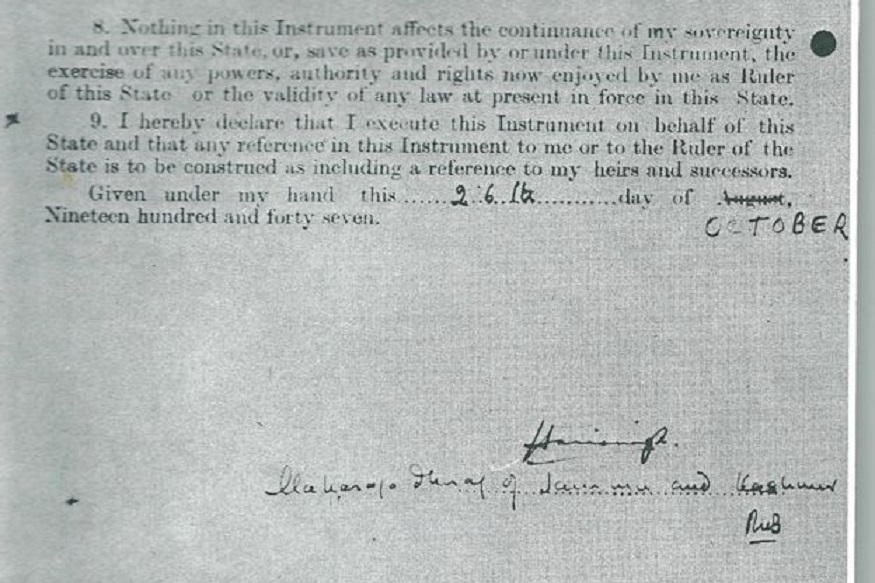 8. Nothing in this Instrument affects the continuance of my sovereignty
in and over this State, or, save as provided by or under this Instrument, the
exercise of any powers, authority and rights now enjoyed by me as Ruler
of this State or the validity of any law at present in force in this State.
9. I hereby declare that I execute this Instrument on behalf of this
State and that any reference in this Instrument to me or to the Ruler of the
State is to be construed as including a reference to my heirs and successors.
Given under my hand this......26th............day of August,
Nineteen hundred and forty seven.
OCTOBER
Harisingh.
Maharajadhiraj of Jammu and Kashmir